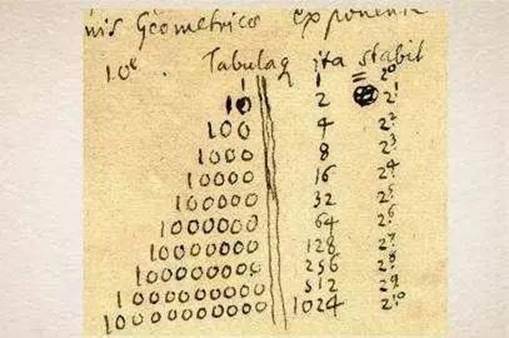 nis Geometrico
10e. Tabulaq ita stabit
1 1 = 2⁰
10 2 2¹
100 4 2²
1000 8 2³
10000 16 2⁴
100000 32 2⁵
1000000 64 2⁶
10000000 128 2⁷
100000000 256 2⁸
1000000000 512 2⁹
10000000000 1024 2¹⁰